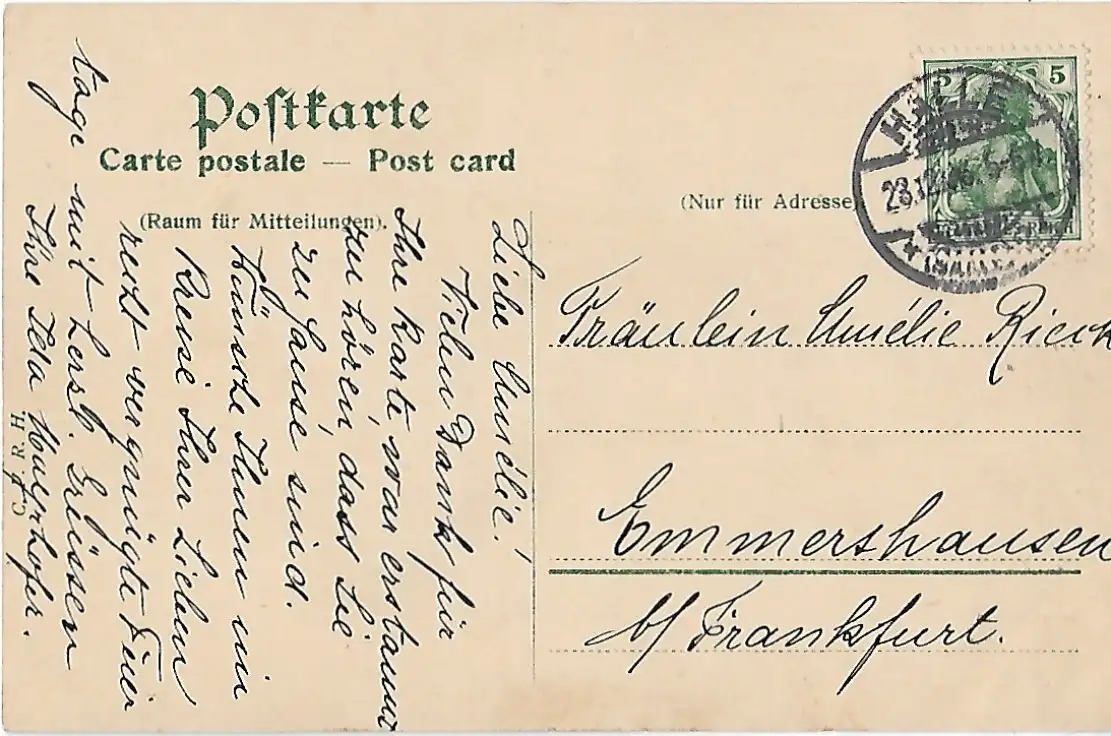 Postkarte
Carte postale — Post card
(Raum für Mitteilungen).
(Nur für Adresse)
5 5
HALLE
23.12. 5-6
(SAALE)
Fräulein Amélie Rieck
Emmershausen
b/ Frankfurt.
Liebe Amélie!
Vielen Dank für
Ihre Karte, war erstaunt
zu hören, dass Sie
zu Hause sind.
Wünsche Ihnen im
Kreise Ihrer Lieben
recht vergnügte Feier
tage mit herzl. Grüssen
Ihre Ida Mayrhofer.
C. R. H.